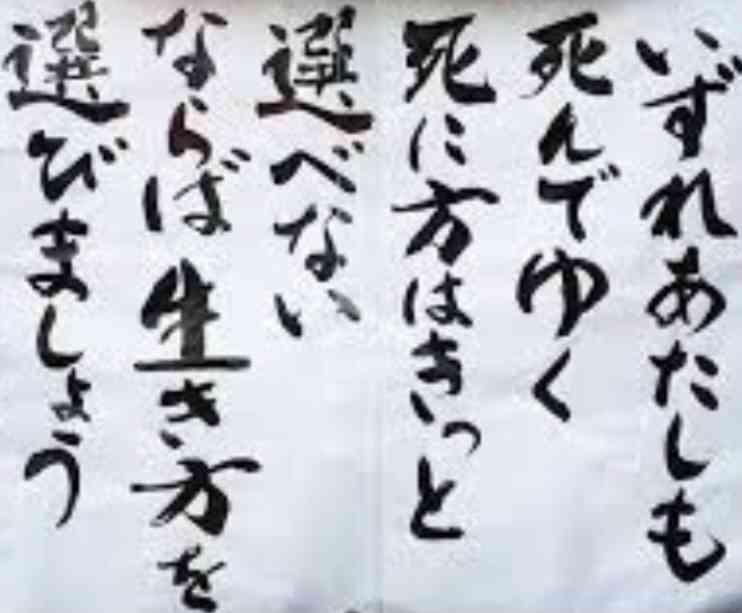 いずれあたしも
死んでゆく
死に方はきっと
選べない
ならば生き方を
選びましょう